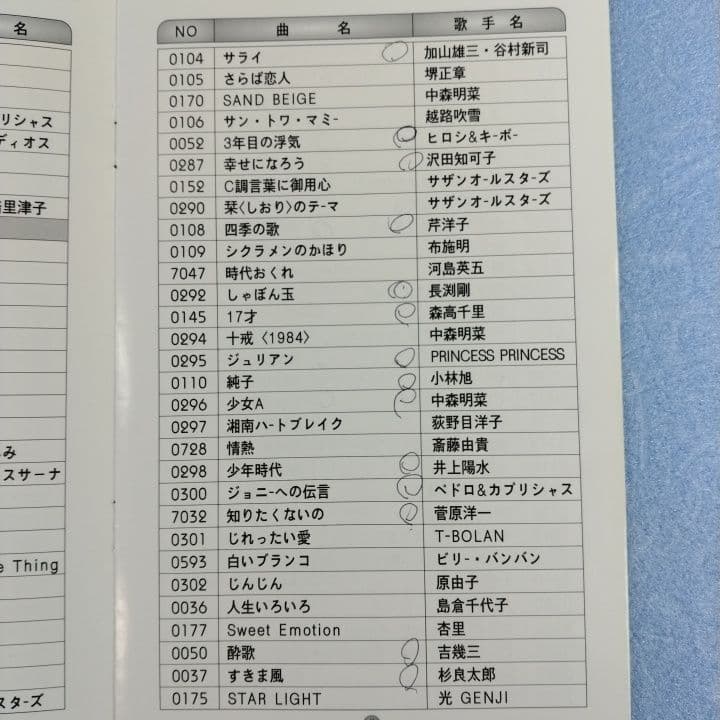 名
リシャス
ディオス
里津子
み
スサーナ
e Thing
スターズ
NO 曲名 歌手名
0104 サライ 加山雄三・谷村新司
0105 さらば恋人 堺正章
0170 SAND BEIGE 中森明菜
0106 サン・トワ・マミー 越路吹雪
0052 3年目の浮気 ヒロシ&キーボー
0287 幸せになろう 沢田知可子
0152 C調言葉に御用心 サザンオールスターズ
0290 栞〈しおり〉のテーマ サザンオールスターズ
0108 四季の歌 芹洋子
0109 シクラメンのかほり 布施明
7047 時代おくれ 河島英五
0292 しゃぼん玉 長渕剛
0145 17才 森高千里
0294 十戒〈1984〉 中森明菜
0295 ジュリアン PRINCESS PRINCESS
0110 純子 小林旭
0296 少女A 中森明菜
0297 湘南ハートブレイク 荻野目洋子
0728 情熱 斎藤由貴
0298 少年時代 井上陽水
0300 ジョニーへの伝言 ペドロ&カプリシャス
7032 知りたくないの 菅原洋一
0301 じれったい愛 T-BOLAN
0593 白いブランコ ビリー・バンバン
0302 じんじん 原由子
0036 人生いろいろ 島倉千代子
0177 Sweet Emotion 杏里
0050 酔歌 吉幾三
0037 すきま風 杉良太郎
0175 STAR LIGHT 光 GENJI